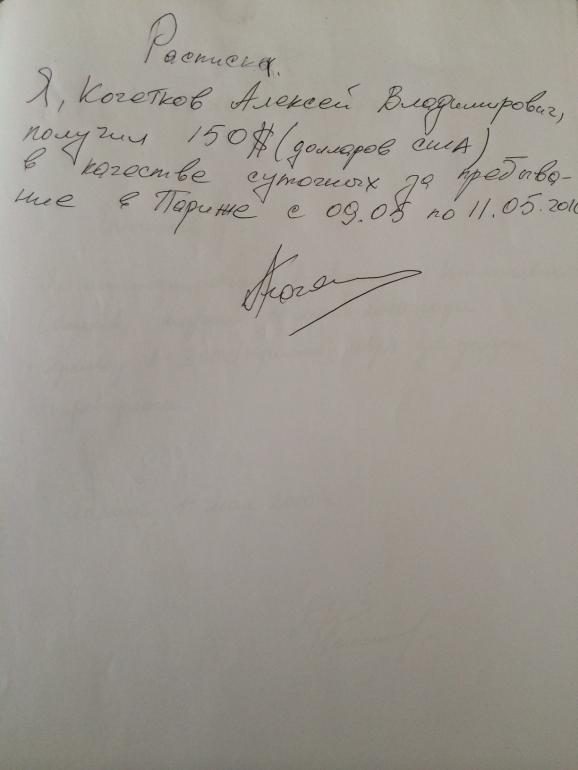 Расписка.
Я, Кочетков Алексей Владимирович,
получил 150$ (долларов США)
в качестве суточных за пребыва-
ние в Париже с 09.05 по 11.05.2010